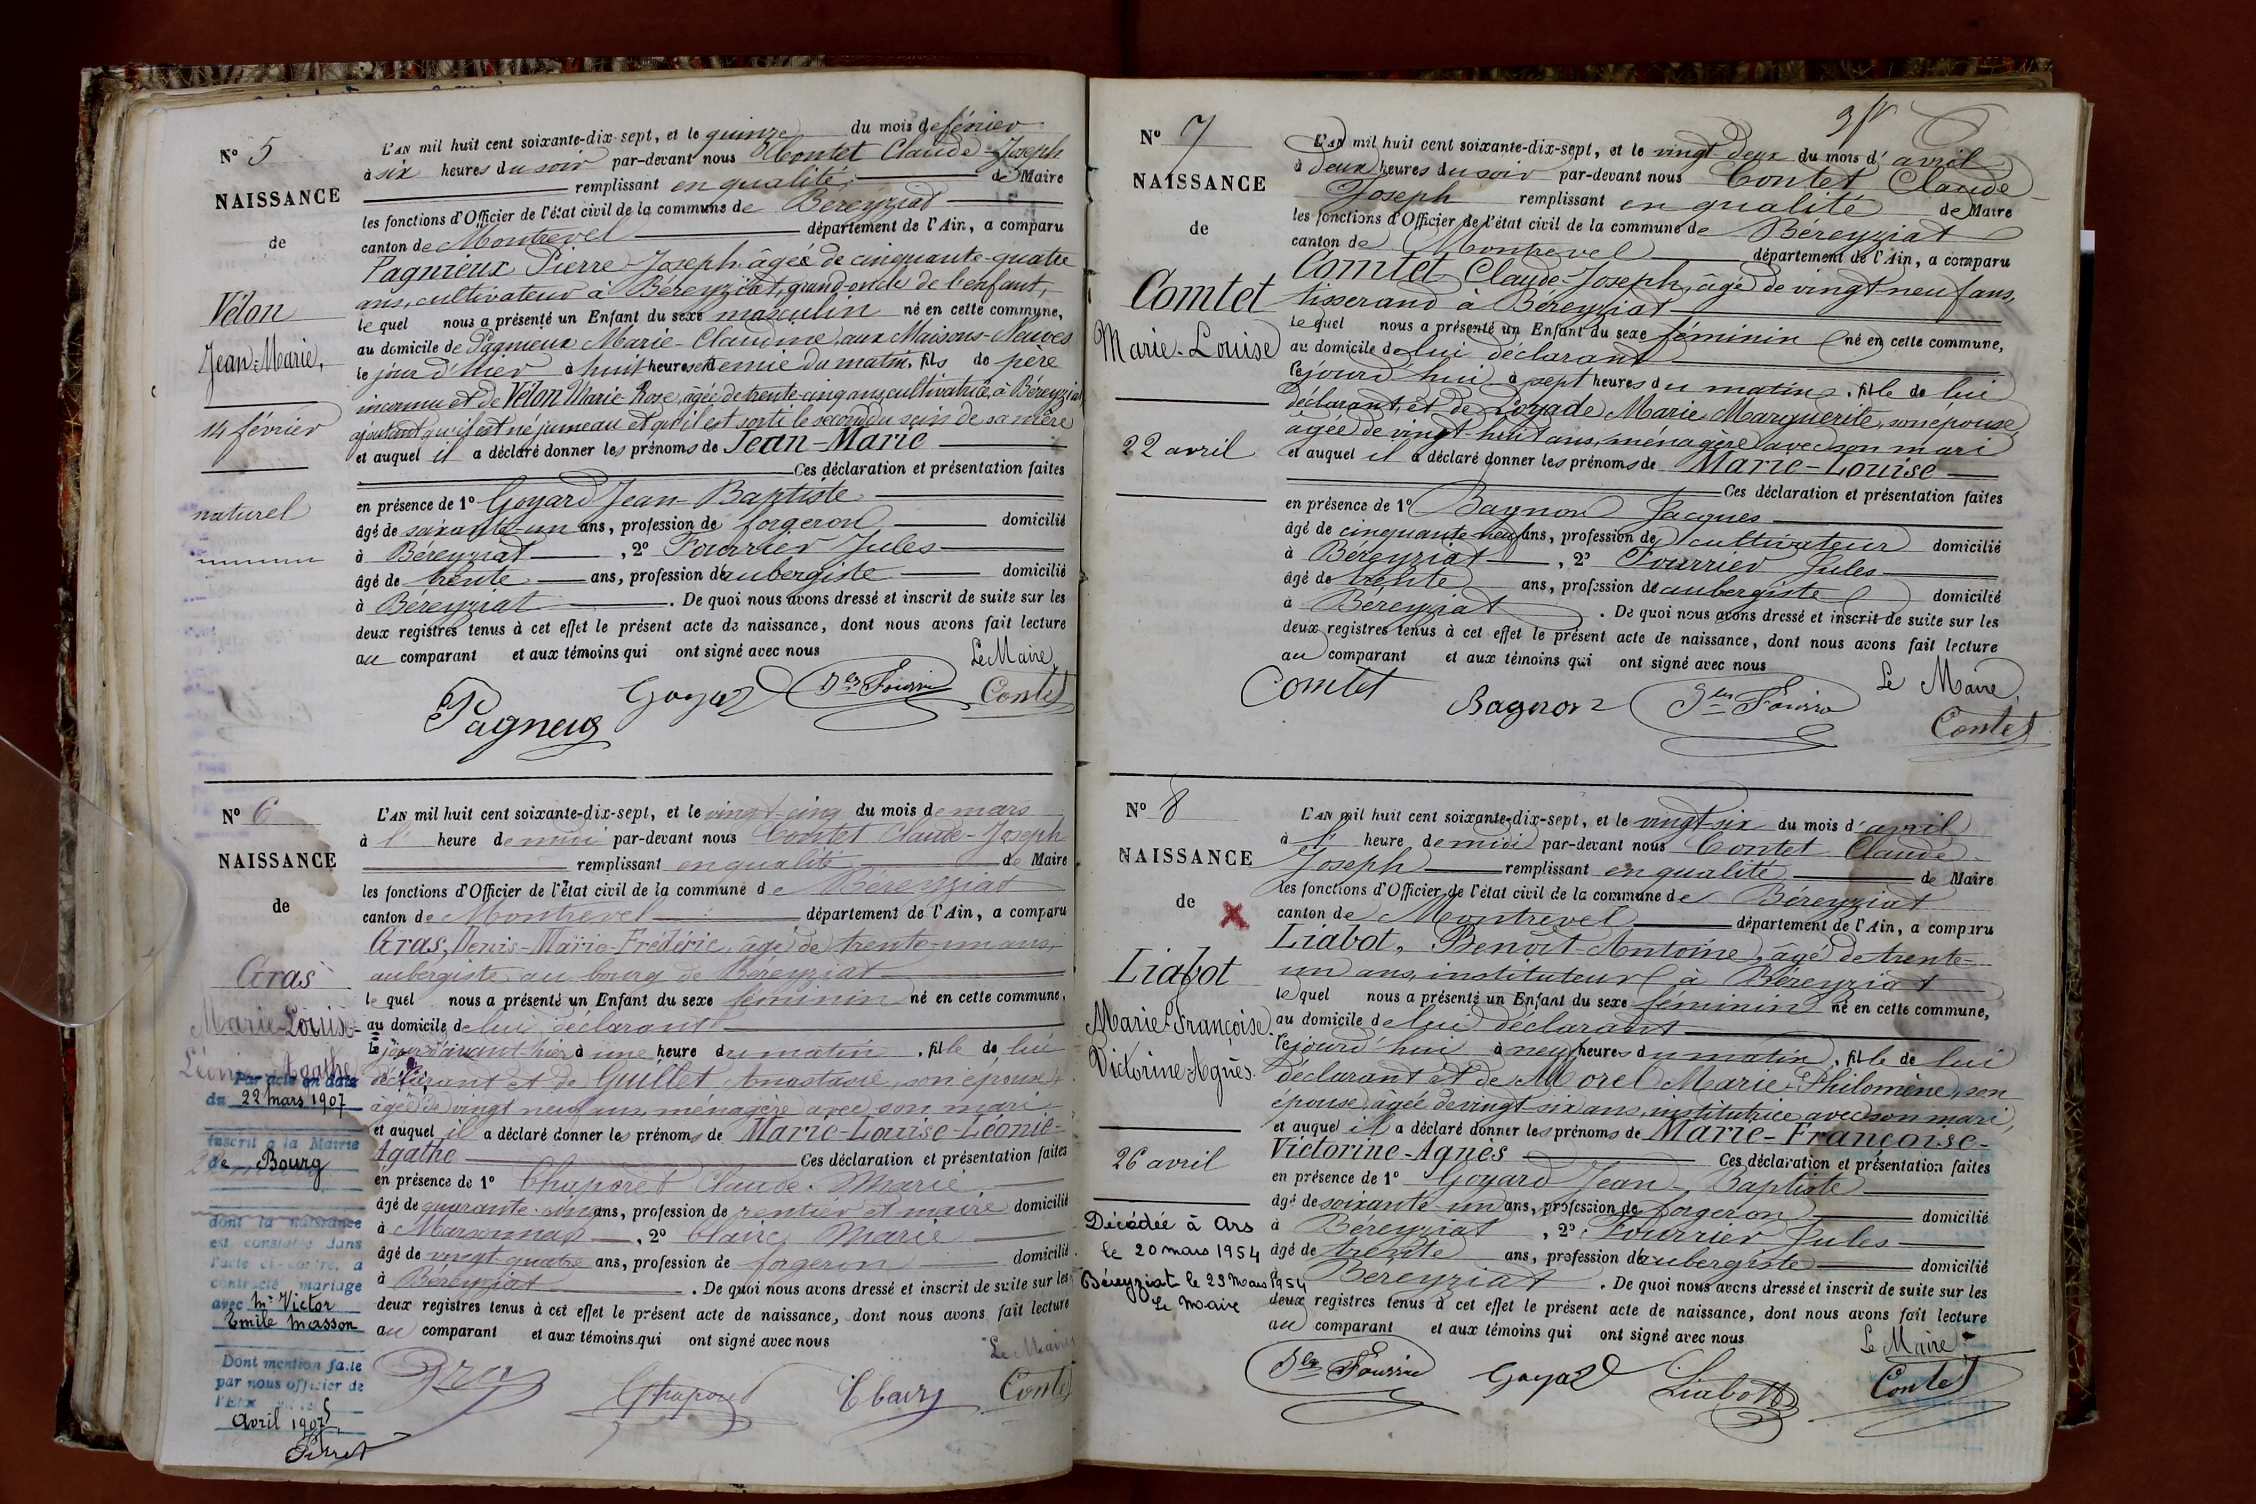 N° 5
NAISSANCE
de
Vélon
Jean-Marie,
14 février
naturel
L'AN mil huit cent soixante-dix-sept, et le quinze du mois de février
à six heures du soir par-devant nous Contet Claude-Joseph
remplissant en qualité de Maire
les fonctions d'Officier de l'état civil de la commune de Béreyziat
canton de Montrevel département de l'Ain, a comparu
Pagnieux Pierre-Joseph âgé de cinquante-quatre
ans, cultivateur à Béreyziat, grand-oncle de l'enfant,
le quel nous a présenté un Enfant du sexe masculin né en cette commune,
au domicile de Pagnieux Marie-Claudine, aux Maisons-Neuves
le jour d'hier à huit heures et demie du matin, fils de père
inconnu et de Vélon Marie Rose, âgée de trente-cinq ans, cultivatrice à Béreyziat
ajoutant qu'il est né jumeau et qu'il est sorti le second du sein de sa mère
et auquel il a déclaré donner les prénoms de Jean-Marie
Ces déclaration et présentation faites
en présence de 1° Goyard Jean-Baptiste
âgé de soixante-un ans, profession de forgeron domicilié
à Béreyziat, 2° Fourrier Jules
âgé de trente ans, profession d'aubergiste domicilié
à Béreyziat. De quoi nous avons dressé et inscrit de suite sur les
deux registres tenus à cet effet le présent acte de naissance, dont nous avons fait lecture
au comparant et aux témoins qui ont signé avec nous
Le Maire
Pagneux Goyard Jles Fourrier Contet
N° 6
NAISSANCE
de
Gras
Marie-Louise-
Léonie-Agathe
Par acte en date
du 22 mars 1907
inscrit à la Mairie
de Bourg
dont la naissance
est constatée dans
l'acte ci-contre, a
contracté mariage
avec Mr Victor
Emile Masson
Dont mention faite
par nous officier de
l'Etat
Avril 1907
L'AN mil huit cent soixante-dix-sept, et le vingt-cinq du mois de mars
à l' heure de midi par-devant nous Contet Claude-Joseph
remplissant en qualité de Maire
les fonctions d'Officier de l'état civil de la commune de Béreyziat
canton de Montrevel département de l'Ain, a comparu
Gras, Denis-Marie-Frédéric, âgé de trente-un ans,
aubergiste au bourg de Béreyziat
le quel nous a présenté un Enfant du sexe féminin né en cette commune,
au domicile de lui déclarant
le jour d'avant-hier à une heure du matin, fille de lui
déclarant et de Guillet Anastasie, son épouse,
âgée de vingt neuf ans, ménagère avec son mari
et auquel il a déclaré donner les prénoms de Marie-Louise-Léonie-
Agathe Ces déclaration et présentation faites
en présence de 1° Chaporet Claude-Marie
âgé de quarante-cinq ans, profession de rentier et maire domicilié
à Marsonnas, 2° Clair Marie
âgé de vingt quatre ans, profession de forgeron domicilié
à Béreyziat. De quoi nous avons dressé et inscrit de suite sur les
deux registres tenus à cet effet le présent acte de naissance, dont nous avons fait lecture
au comparant et aux témoins qui ont signé avec nous
Le Maire
Gras Chaporet Contet
N° 7
NAISSANCE
de
Comtet
Marie-Louise
22 avril
L'AN mil huit cent soixante-dix-sept, et le vingt deux du mois d'avril
à deux heures du soir par-devant nous Contet Claude-
Joseph remplissant en qualité de Maire
les fonctions d'Officier de l'état civil de la commune de Béreyziat
canton de Montrevel département de l'Ain, a comparu
Comtet Claude-Joseph, âgé de vingt neuf ans,
tisserand à Béreyziat
le quel nous a présenté un Enfant du sexe féminin né en cette commune,
au domicile de lui déclarant
cejourd'hui à sept heures du matin, fille de lui
déclarant, et de Poyade Marie Marguerite, son épouse
âgée de vingt-huit ans, ménagère avec son mari
et auquel il a déclaré donner les prénoms de Marie-Louise
Ces déclaration et présentation faites
en présence de 1° Bagnon Jacques
âgé de cinquante-neuf ans, profession de cultivateur domicilié
à Béreyziat, 2° Fourrier Jules
âgé de trente ans, profession d'aubergiste domicilié
à Béreyziat. De quoi nous avons dressé et inscrit de suite sur les
deux registres tenus à cet effet le présent acte de naissance, dont nous avons fait lecture
au comparant et aux témoins qui ont signé avec nous
Le Maire
Comtet Bagnon Jles Fourrier Contet
N° 8
NAISSANCE
de
Liabot
Marie-Françoise
Victorine-Agnès.
26 avril
Décédée à Ars
le 20 mars 1954
Béreyziat le 23 mars 1954
Le Maire
L'AN mil huit cent soixante-dix-sept, et le vingt-six du mois d'avril
à l' heure de midi par-devant nous Contet Claude-
Joseph remplissant en qualité de Maire
les fonctions d'Officier de l'état civil de la commune de Béreyziat
canton de Montrevel département de l'Ain, a comparu
Liabot, Benoît-Antoine, âgé de trente-
un ans, instituteur à Béreyziat
le quel nous a présenté un Enfant du sexe féminin né en cette commune,
au domicile de lui déclarant
cejourd'hui à neuf heures du matin, fille de lui
déclarant et de Morel Marie-Philomène, son
épouse, âgée de vingt six ans, institutrice avec son mari,
et auquel il a déclaré donner les prénoms de Marie-Françoise-
Victorine-Agnès Ces déclaration et présentation faites
en présence de 1° Goyard Jean-Baptiste
âgé de soixante-un ans, profession de forgeron domicilié
à Béreyziat, 2° Fourrier Jules
âgé de trente ans, profession d'aubergiste domicilié
à Béreyziat. De quoi nous avons dressé et inscrit de suite sur les
deux registres tenus à cet effet le présent acte de naissance, dont nous avons fait lecture
au comparant et aux témoins qui ont signé avec nous
Le Maire
Jles Fourrier Goyard Liabot Contet